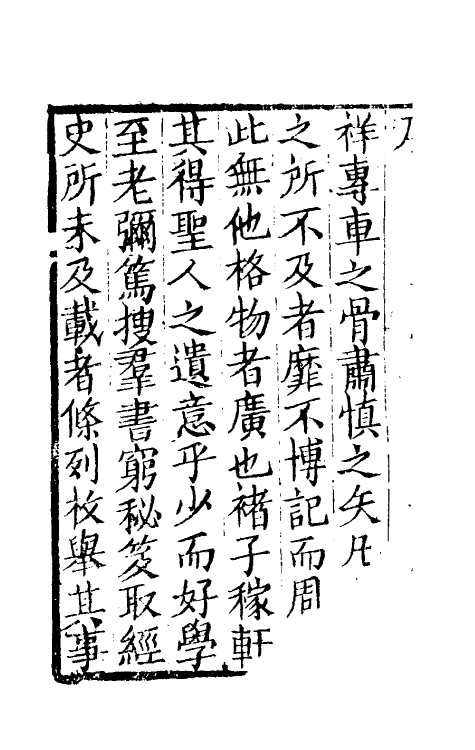 祥專車之骨肅慎之矢凡
之所不及者靡不博記而周
此無他格物者廣也褚子稼軒
其得聖人之遺意乎少而好學
至老彌篤搜羣書窮秘笈取經
史所未及載者條列枚舉其事